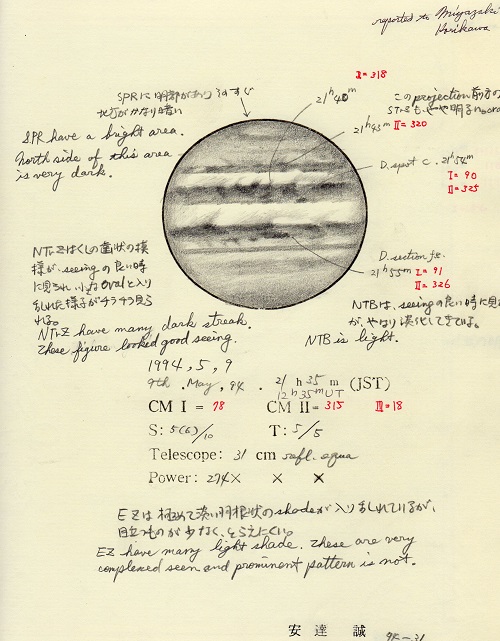 reported to Miyazaki
Horikawa
II = 318
21h 40m
SPRに明部があり
地方がかなり暗い
この projection 前方の
SPR have a bright area.
North side of this area
is very dark.
21h 43m II = 320
D. spot c. 21h 54m
I = 90
II = 325
D. section f.
21h 55m I = 91
II = 326
NTrZはくしの歯状の模
様が、seeingの良い時
に見られ、小さなovalと入り
乱れた様子がチラチラ見ら
れる。
NTrZ have many dark streak.
These figure looked good seeing.
NTBは、seeingの良い時に見
が、やはり淡化してきている。
NTB is light.
1994, 5, 9
9th. May, 94. 21 h 35 m (JST)
12h 35m UT
CM I = 78 CM II = 315 III = 18
S: 5(6)/10 T: 5/5
Telescope: 31 cm refl. equa
Power: 274× × ×
EZは極めて淡い羽根状のshadeが入り乱れているが、
目立つものが少なく、とらえにくい。
EZ have many light shade. These are very
complexed seen and prominent pattern is not.
安達 誠